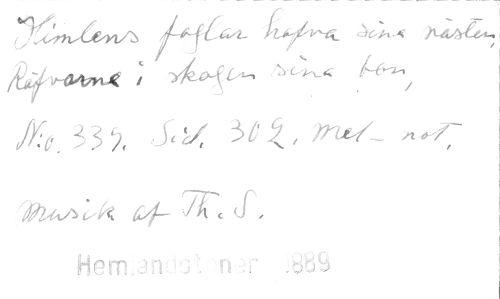 Himlens foglar hafva sina nästen,
Räfvarne i skogen sina bon,
N:o. 339. Sid. 302. mel- not.
Musik af Th. S.
Hemlandstoner 1889